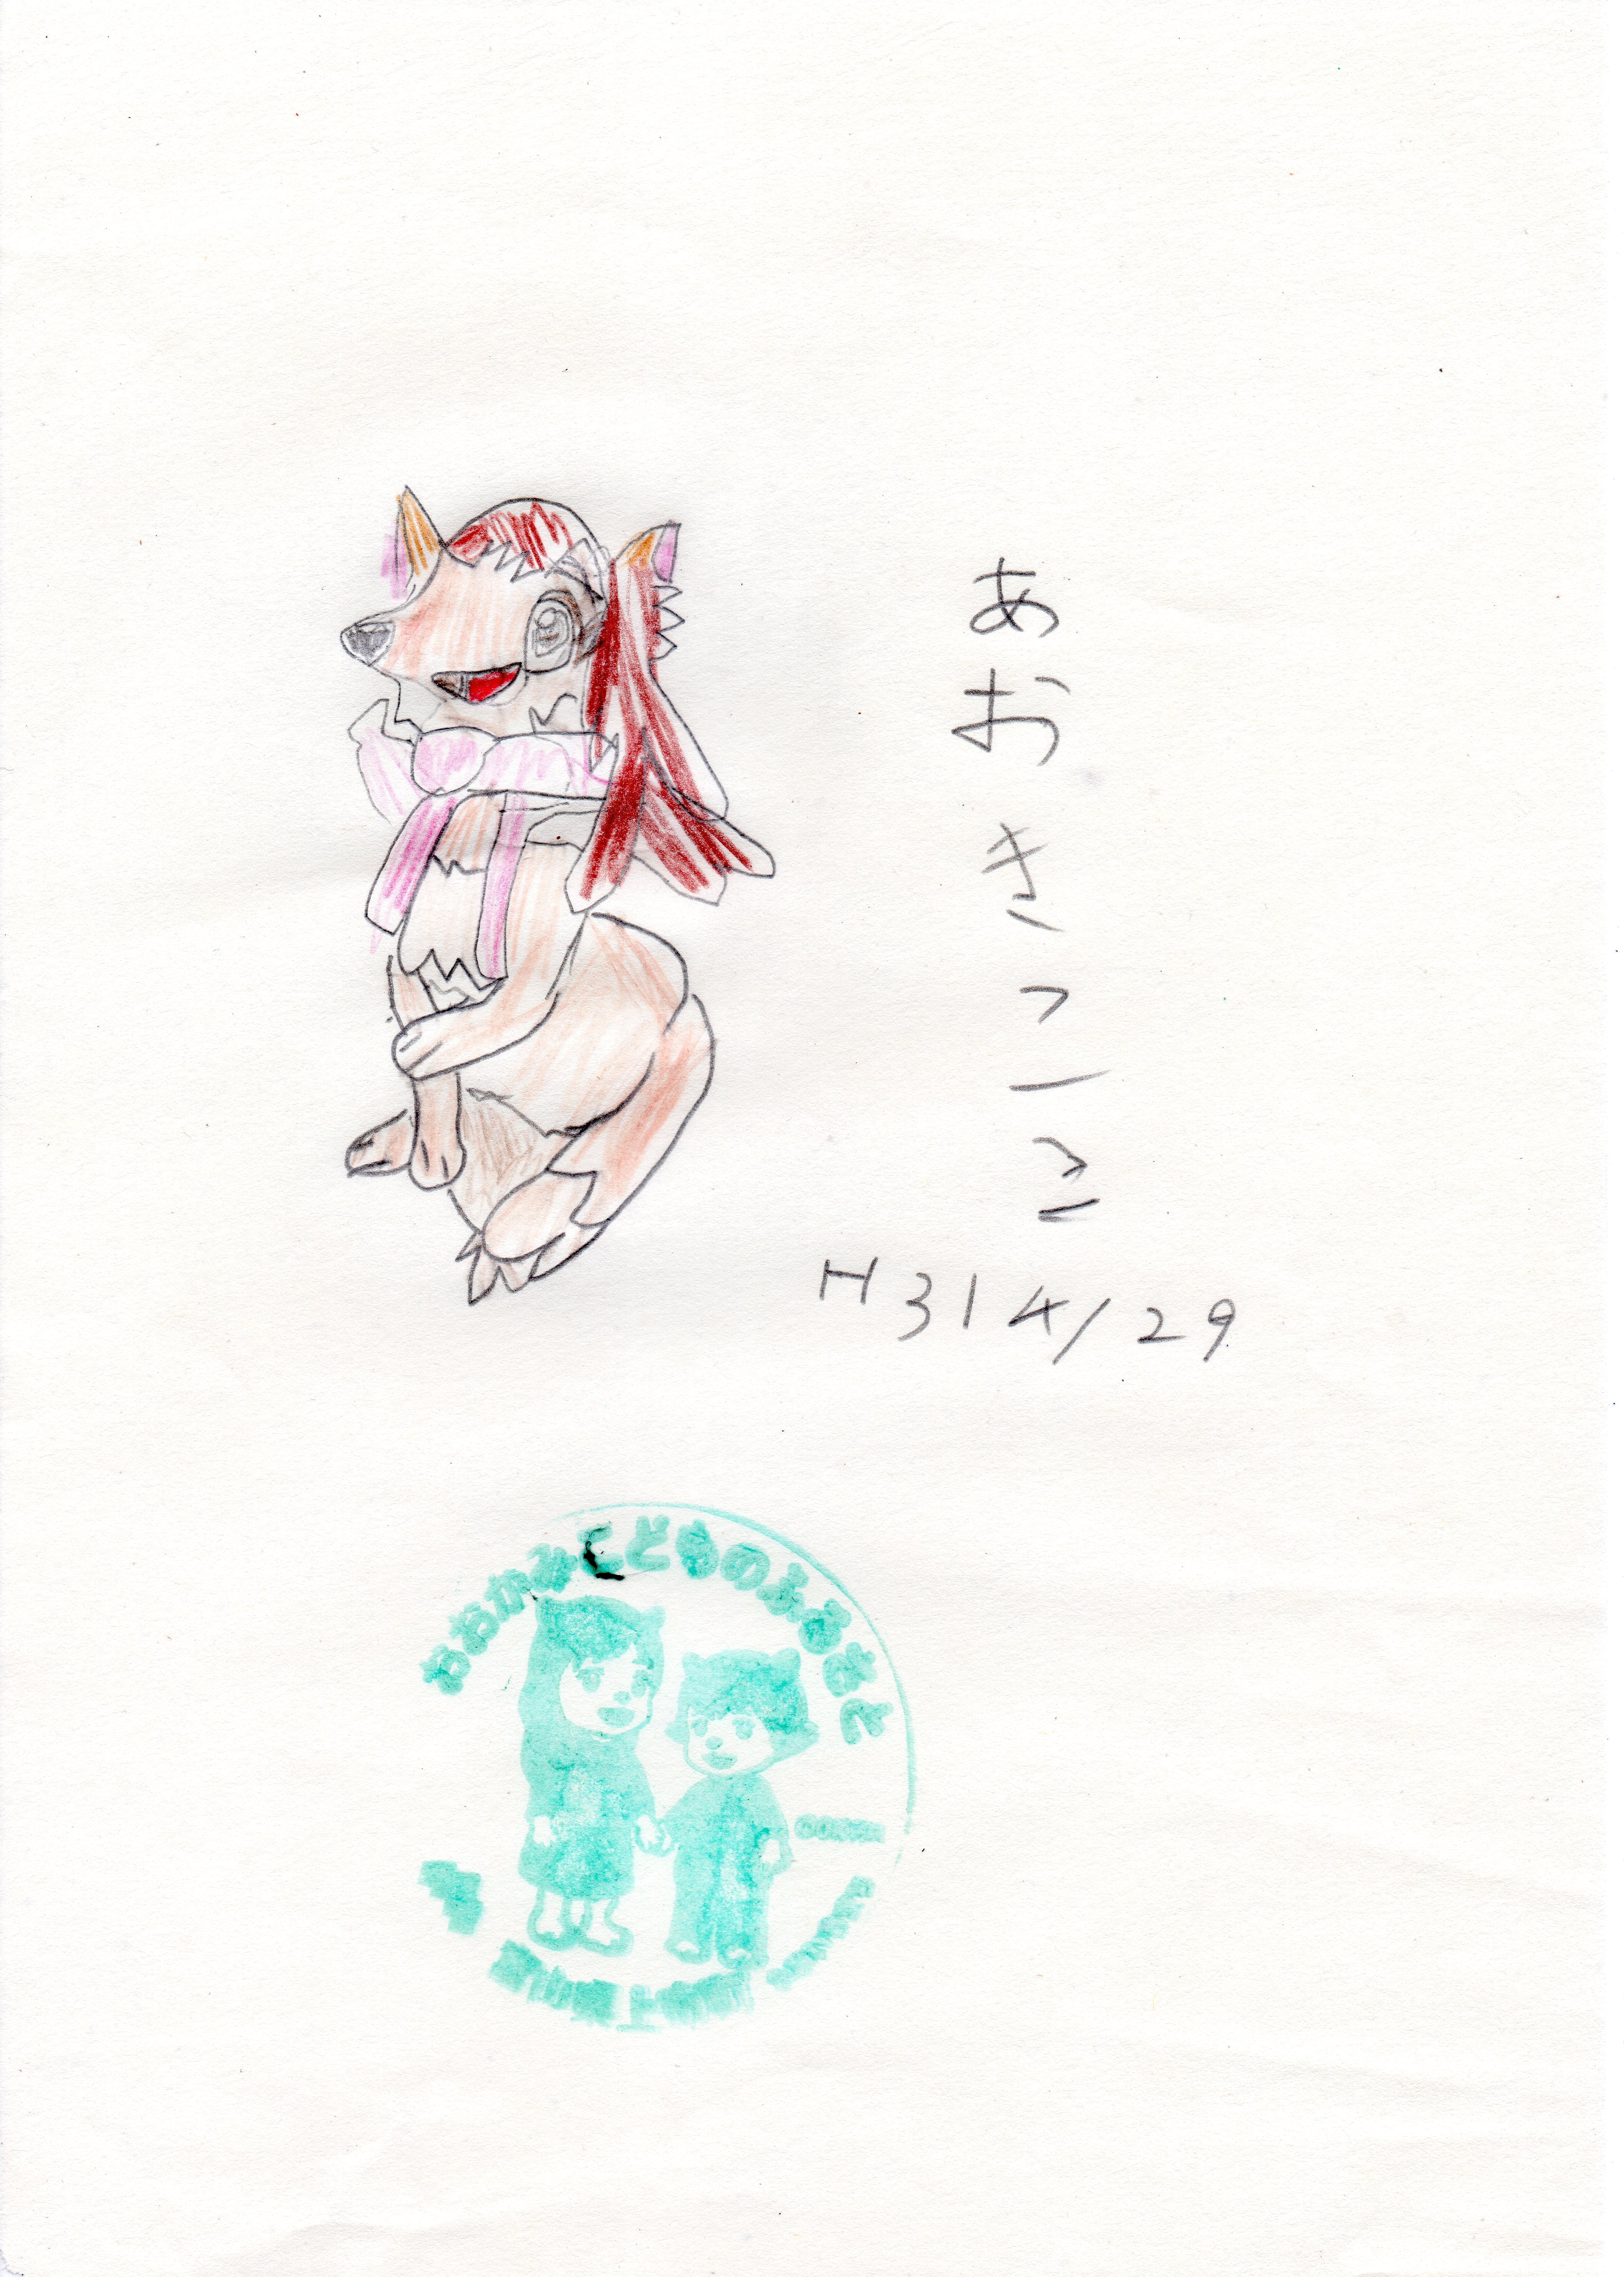 あおきつーこ
H31 4/29
おおかみこどものふるさと